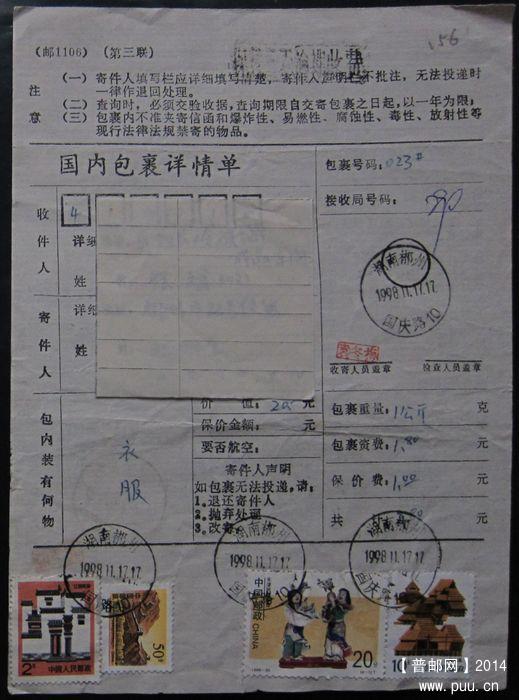 (邮1106) (第三联)
156
注意
(一) 寄件人填写栏应详细填写清楚,寄件人声明栏不批注,无法投递时
一律作退回处理。
(二) 查询时,必须交验收据,查询期限自交寄包裹之日起,以一年为限;
(三) 包裹内不准夹寄信函和爆炸性、易燃性、腐蚀性、毒性、放射性等
现行法律法规禁寄的物品。
国内包裹详情单
包裹号码: 023#
接收局号码:
收件人
4
详细
姓
寄件人
详细
姓
湖南郴州
1998.11.17.17
国庆路10
收寄人员盖章
检查人员盖章
包内装有何物
衣服
价 值: 元
保价金额: 元
要否航空:
寄件人声明
如包裹无法投递,请:
1.退还寄件人
2.抛弃处理
3.改寄
包裹重量: 1公斤 克
包裹资费: 1.80 元
保 价 费: 1.00 元
共 元
湖南郴州
1998.11.17.17
国庆路10
湖南郴州
1998.11.17.17
湖南郴州
1998.11.17.17
国庆路10
2元
中国人民邮政
50分
中国邮政
CHINA
20分
【普邮网】2014
www.puu.cn